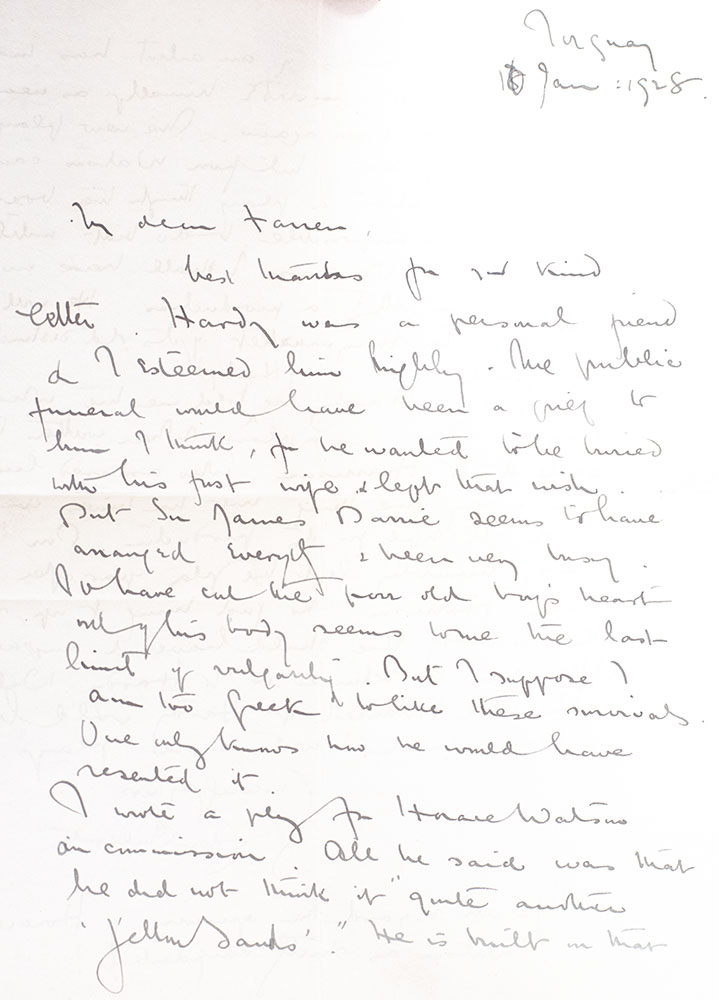 Torquay
16 Jan: 1928.
My dear Farren,
best thanks for your kind
letter. Hardy was a personal friend
& I esteemed him highly. The public
funeral would have been a grief to
him I think, for he wanted to be buried
with his first wife & left that wish.
But Sir James Barrie seems to have
arranged everyth & been very busy.
To have cut the poor old boy's heart
out of his body seems to me the last
limit of vulgarity. But I suppose I
am too Greek to like these survivals.
One only knows how he would have
resented it
I wrote a play for Horace Watson
on commission. All he said was that
he did not think it "quite another
'Yellow Sands'." He is built on that